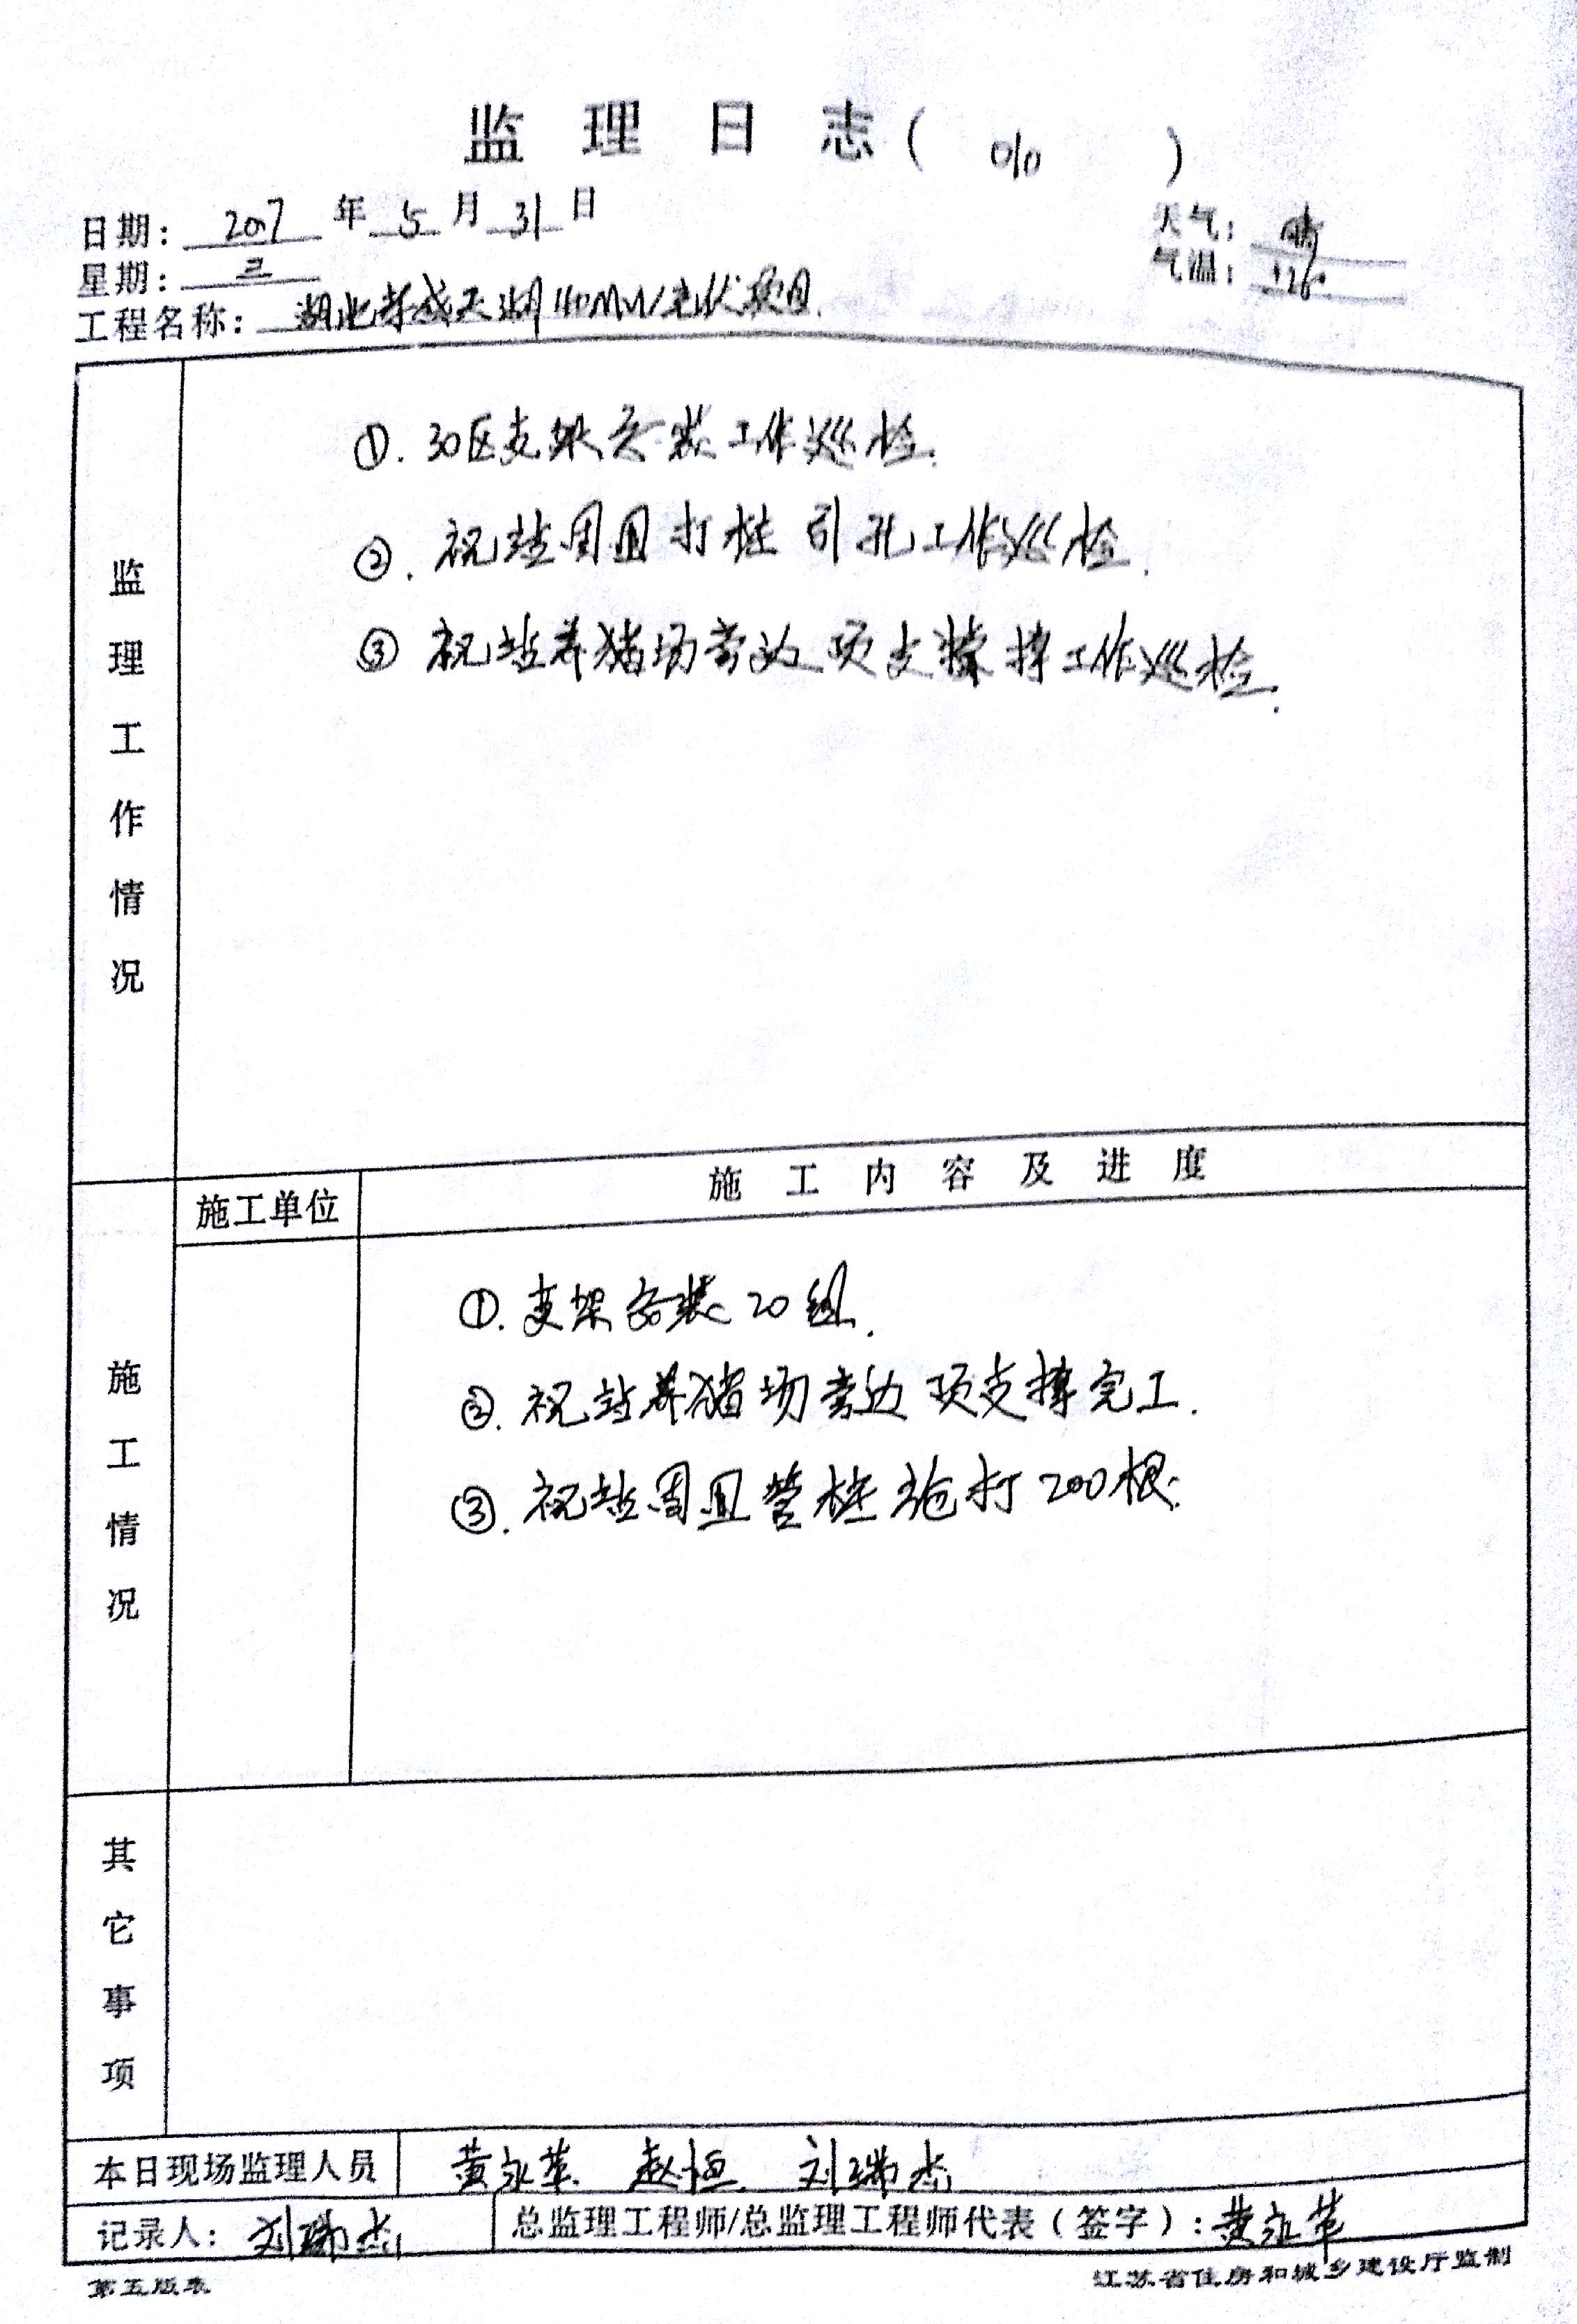 监理日志( 010 )
日期: 2017 年 5 月 31 日 天气: 晴
星期: 三 气温: +26°
工程名称: 湖北孝感天湖110MW光伏项目.
监理工作情况
①. 30区支架安装工作巡检.
②. 祝站周皿打桩引孔工作巡检.
③ 祝站养猪场旁边 项支撑 工作巡检.
施工单位 施工内容及进度
施工情况
①. 支架安装20组.
②. 祝站养猪场旁边 项支撑完工.
③. 祝站周皿管桩 打200根.
其它事项
本日现场监理人员 黄永革. 赵恒. 刘瑞杰
记录人: 刘瑞杰 总监理工程师/总监理工程师代表(签字): 黄永革
第五版表 江苏省住房和城乡建设厅监制